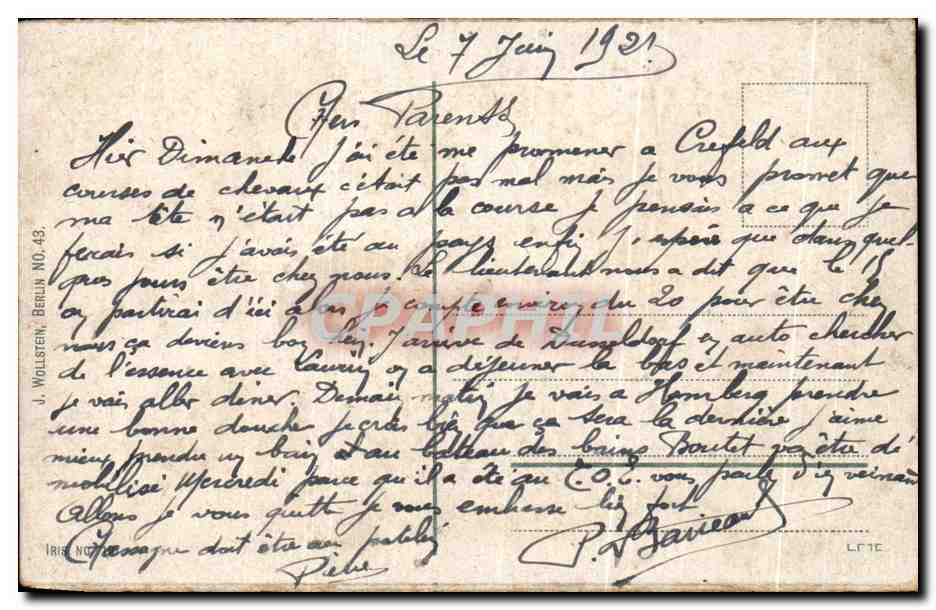 Le 7 Juin 1921.
Chers Parents
Hier Dimanche j'ai été me promener a Crefeld aux
courses de chevaux c'était pas mal mais je vous promet que
ma tête n'était pas a la course je pensais a ce que je
ferais si j'avais été au pays enfin j'espère que dans quel-
ques jours être chez nous. Le lieutenant nous a dit que le 15
on partirai d'ici alors je compte environ du 20 pour être chez
nous ça deviens bon hein. J'arrive de Dusseldorf en auto chercher
de l'essence avec on a déjeuner la bas et maintenant
je vais aller diner. Demain matin je vais a Homberg prendre
une bonne doucher je crois bien que ça sera la dernière j'aime
mieux prendre un bain au bateau des bains Boutet va être dé
mobilisé Mercredi parce qu'il a été au vous
Allons je vous quitte je vous embrasse bien fort
doit être au
Pierre
P.
J. WOLLSTEIN, BERLIN NO. 43.
IRIS NO
CPAPHIL